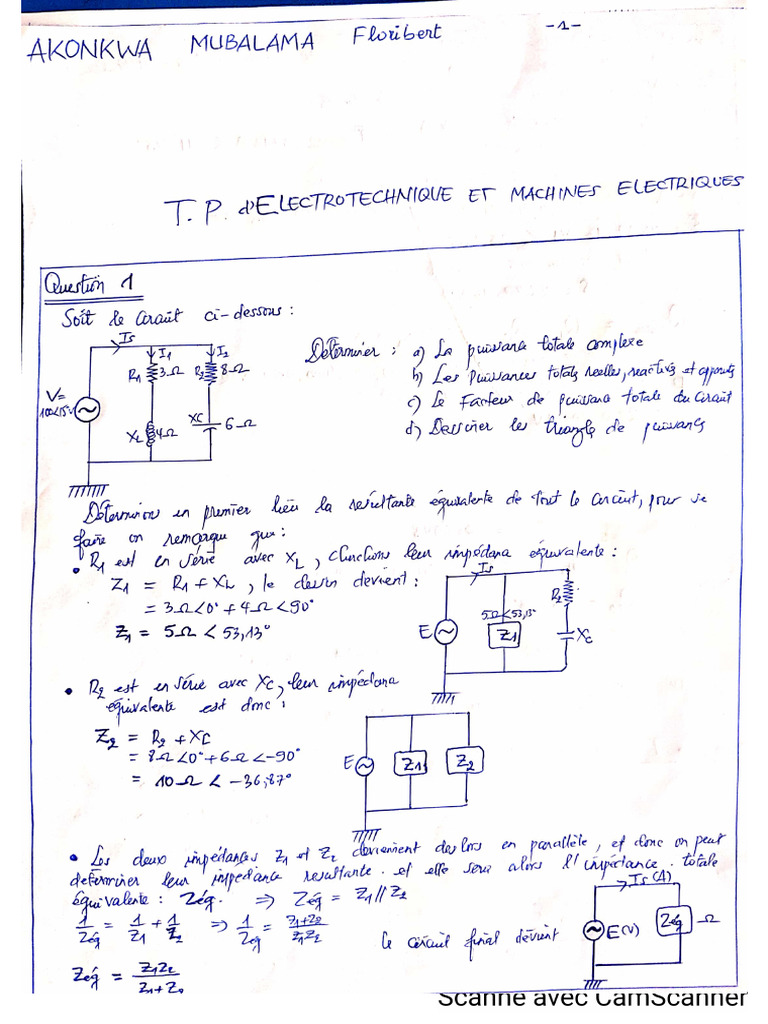 AKONKWA MUBALAMA Floribert -1-
T.P. d'ELECTROTECHNIQUE ET MACHINES ELECTRIQUES
Question 1
Soit le Circuit ci-dessous :
Is
I1 I2
R1 3Ω R2 8Ω
V=
100<15V
XL 4Ω XC 6Ω
Déterminer : a) La puissance totale complexe
b) Les Puissances totales reelles, reactives et apparentes
c) Le Facteur de puissance totale du Circuit
d) Dessiner les triangle de puissances
Déterminons en premier lieu la resultante équivalente de tout le Circuit, pour se
faire on remarque que :
• R1 est en série avec XL, cherchons leur impédance équivalente :
Z1 = R1 + XL, le dessin devient :
= 3Ω<0° + 4Ω<90°
Z1 = 5Ω < 53,13°
Is
5Ω<53,13°
E Z1 R2 XC
• R2 est en série avec XC, leur impédance
équivalente est donc :
Z2 = R2 + XC
= 8Ω<0° + 6Ω<-90°
= 10Ω < -36,87°
E Z1 Z2
• Les deux impédances Z1 et Z2 deviennent des lors en parallèle, et donc on peut
determiner leur impedance resultante. et elle sera alors l'impédance totale
équivalente : Zéq. ⇒ Zéq = Z1//Z2
1/Zéq = 1/Z1 + 1/Z2 ⇒ 1/Zéq = Z1+Z2/Z1Z2
Le circuit final devient
Is(A)
E(V) Zéq Ω
Zéq = Z1Z2/Z1+Z2
Scanné avec CamScanner